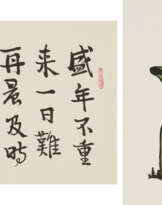 盛年不重
来一日難
再晨及時